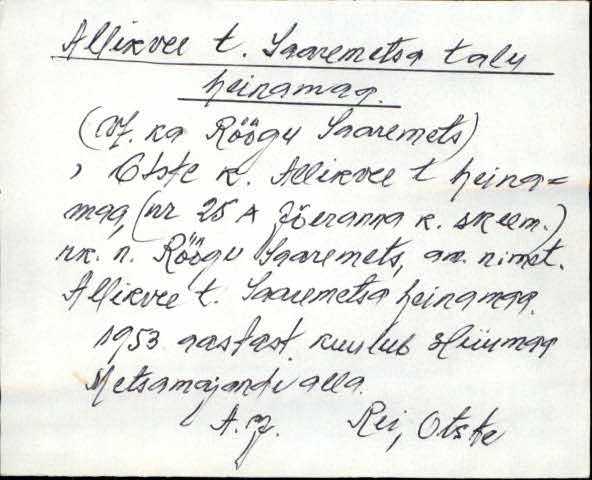 Allikvee t. Saaremetsa talu
heinamaa.
(Vt. ka Röögu Saaremets)
, Otste k. Allikvee t heina=
maa, (nr 25 A Jõeranna k. skeem.)
rk. n. Röögu Saaremets, am. nimet.
Allikvee t. Saaremetsa heinamaa.
1953 aastast kuulub Hiiumaa
Metsamajandi alla.
A. J. Rei, Otste